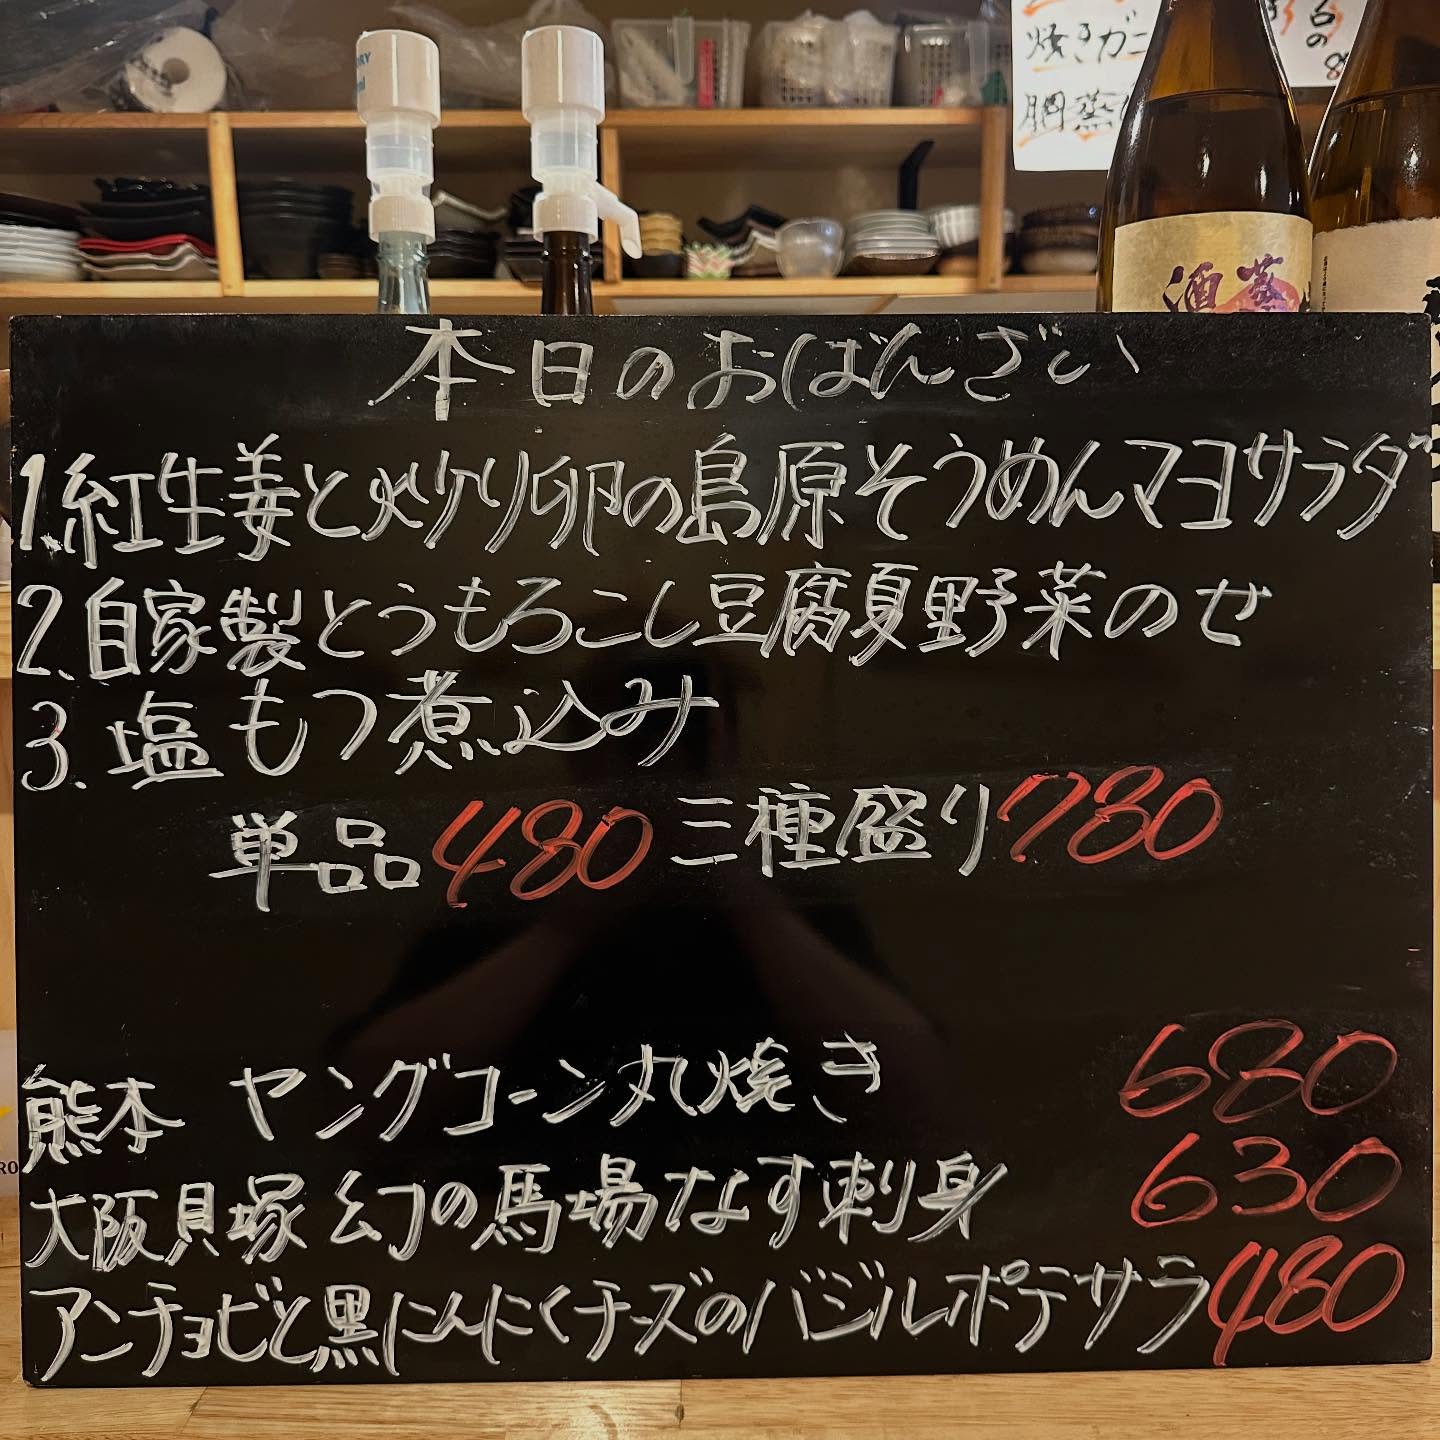 焼きガニ
本日のおばんざい
1.紅生姜と炒り卵の島原そうめんマヨサラダ
2.自家製とうもろこし豆腐夏野菜のせ
3.塩もつ煮込み
単品480 三種盛り780
熊本 ヤングコーン丸焼き 680
大阪貝塚 幻の馬場なす刺身 630
アンチョビと黒にんにくチーズのバジルポテサラ 480